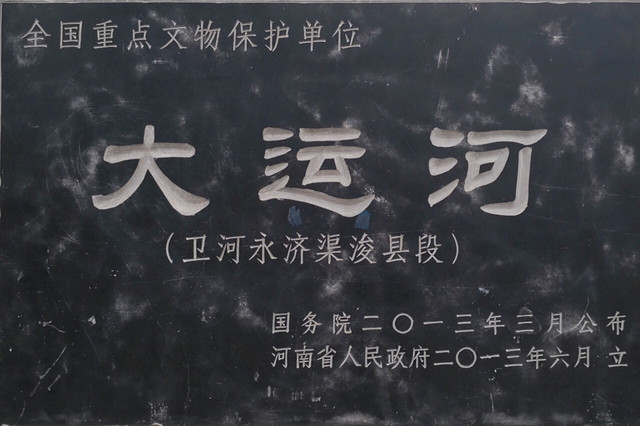 全国重点文物保护单位
大运河
（卫河永济渠浚县段）
国务院二〇一三年三月公布
河南省人民政府二〇一三年六月 立